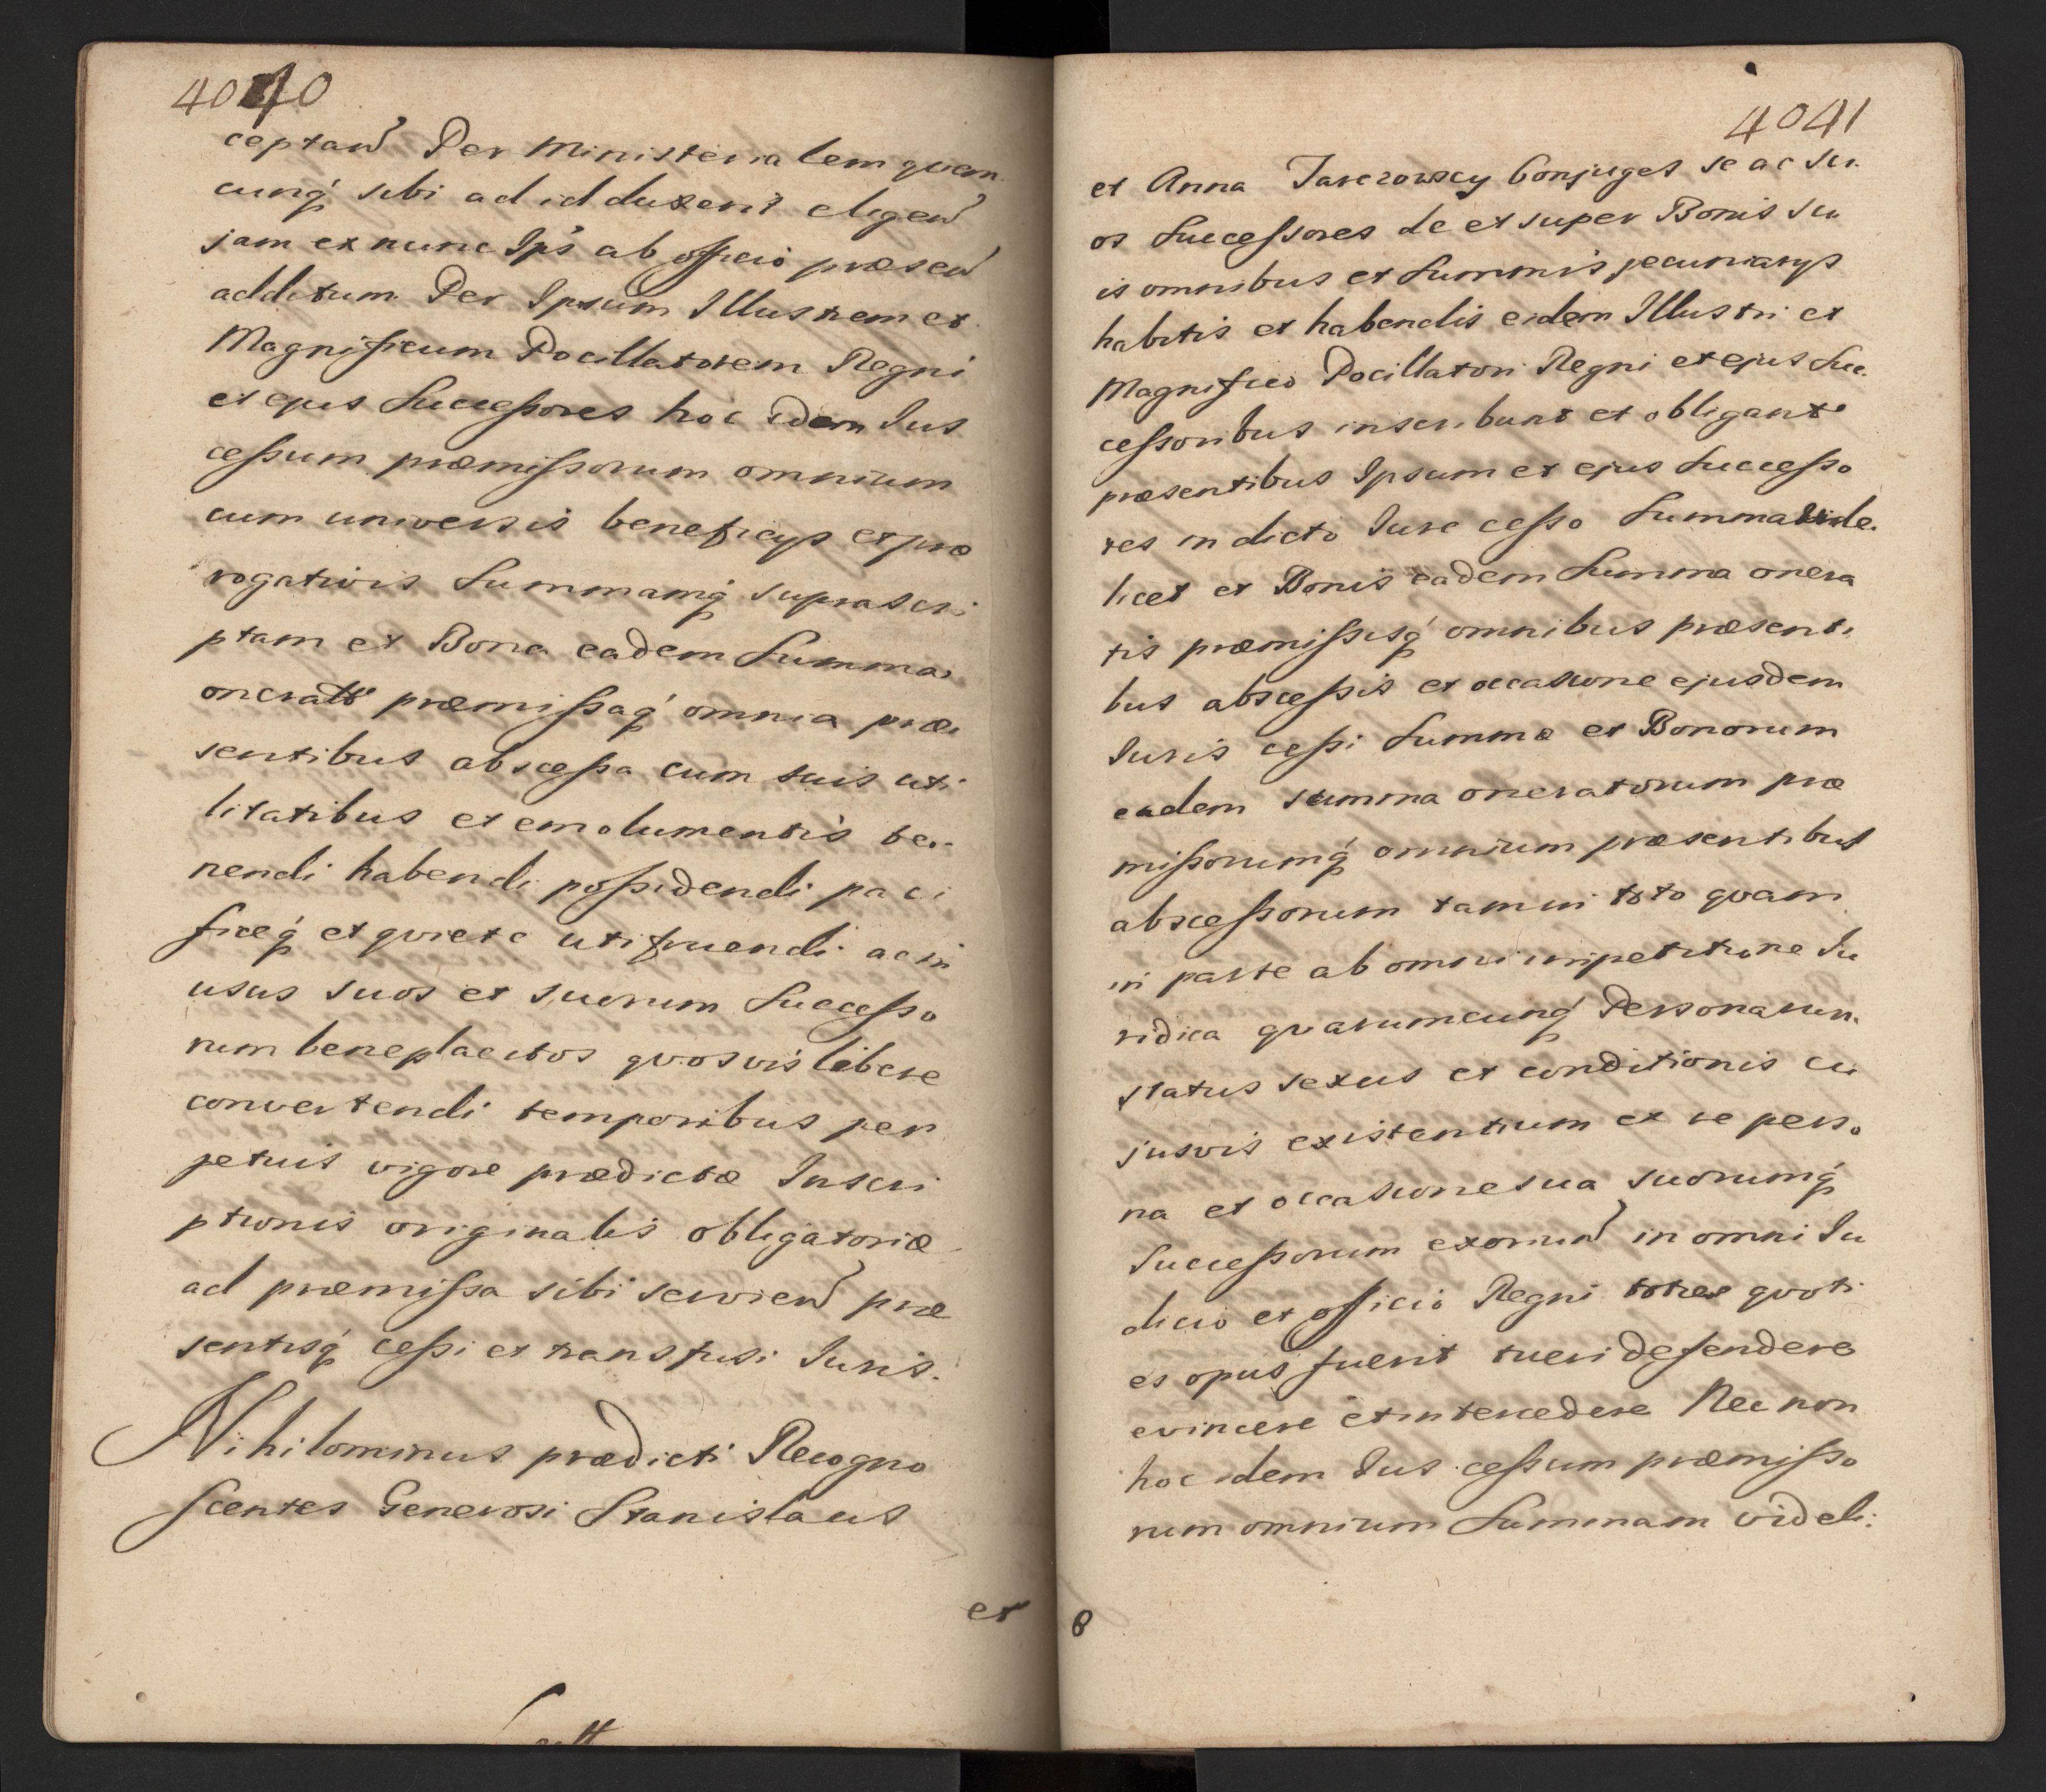 4040
ceptand Per Ministerialem quem
cunq́ sibi ad id duxerit eligend
jam ex nunc Ips ab officio præsend
additum Per Ipsum Illustrem et
Magnificum Pocillatorem Regni
et ejus Successores hoc idem Jus
cessum præmissorum omnium
cum universis beneficijs et præ
rogativis Summamq́ suprascri
ptam et Bona eadem Summa
onerata præmissaq́ omnia præ
sentibus abscessa cum suis uti
litatibus et emolumentis te
nendi habendi possidendi paci
ficeq́ et qviete utifruendi ac in
usus suos et suorum Successo
rum beneplacitos qvosvis libere
convertendi temporibus per
petuis vigore prædictæ Inscri
ptionis originalis obligatoriæ
ad præmissa sibi serviend præ
sentisq́ cessi et transfusi Juris.
Nihilominus prædicti Recogno
scentes Generosi Stanislaus
et
4041
et Anna Jarczowscy Conjuges se ac su
os Successores de et super Bonis su
is omnibus et Summis pecuniarijs
habitis et habendis eidem Illustri et
Magnifico Pocillatori Regni et ejus Suc
cessoribus inscribunt et obligant
præsentibus Ipsum et ejus Successo
res in dicto Jure cesso Summa vide
licet et Bonis eadem Summa onera
tis præmissisq́ omnibus præsenti
bus abscessis et occasione ejusdem
Juris cessi Summæ et Bonorum
eadem summa oneratorum præ
missorumq́ omnium præsentibus
abscessorum tam in toto qvam
in parte ab omni impetitione Ju
ridica qvarumcunq́ Personarum
status sexus et conditionis cu
jusvis existentium ex re perso
na et occasione sua suorumq́
Successorum exoriund in omni Ju
dicio et officio Regni toties qvoti
es opus fuerit tueri defendere
evincere et intercedere Nec non
hoc idem Jus cessum præmisso
rum omnium Summam videli:
8